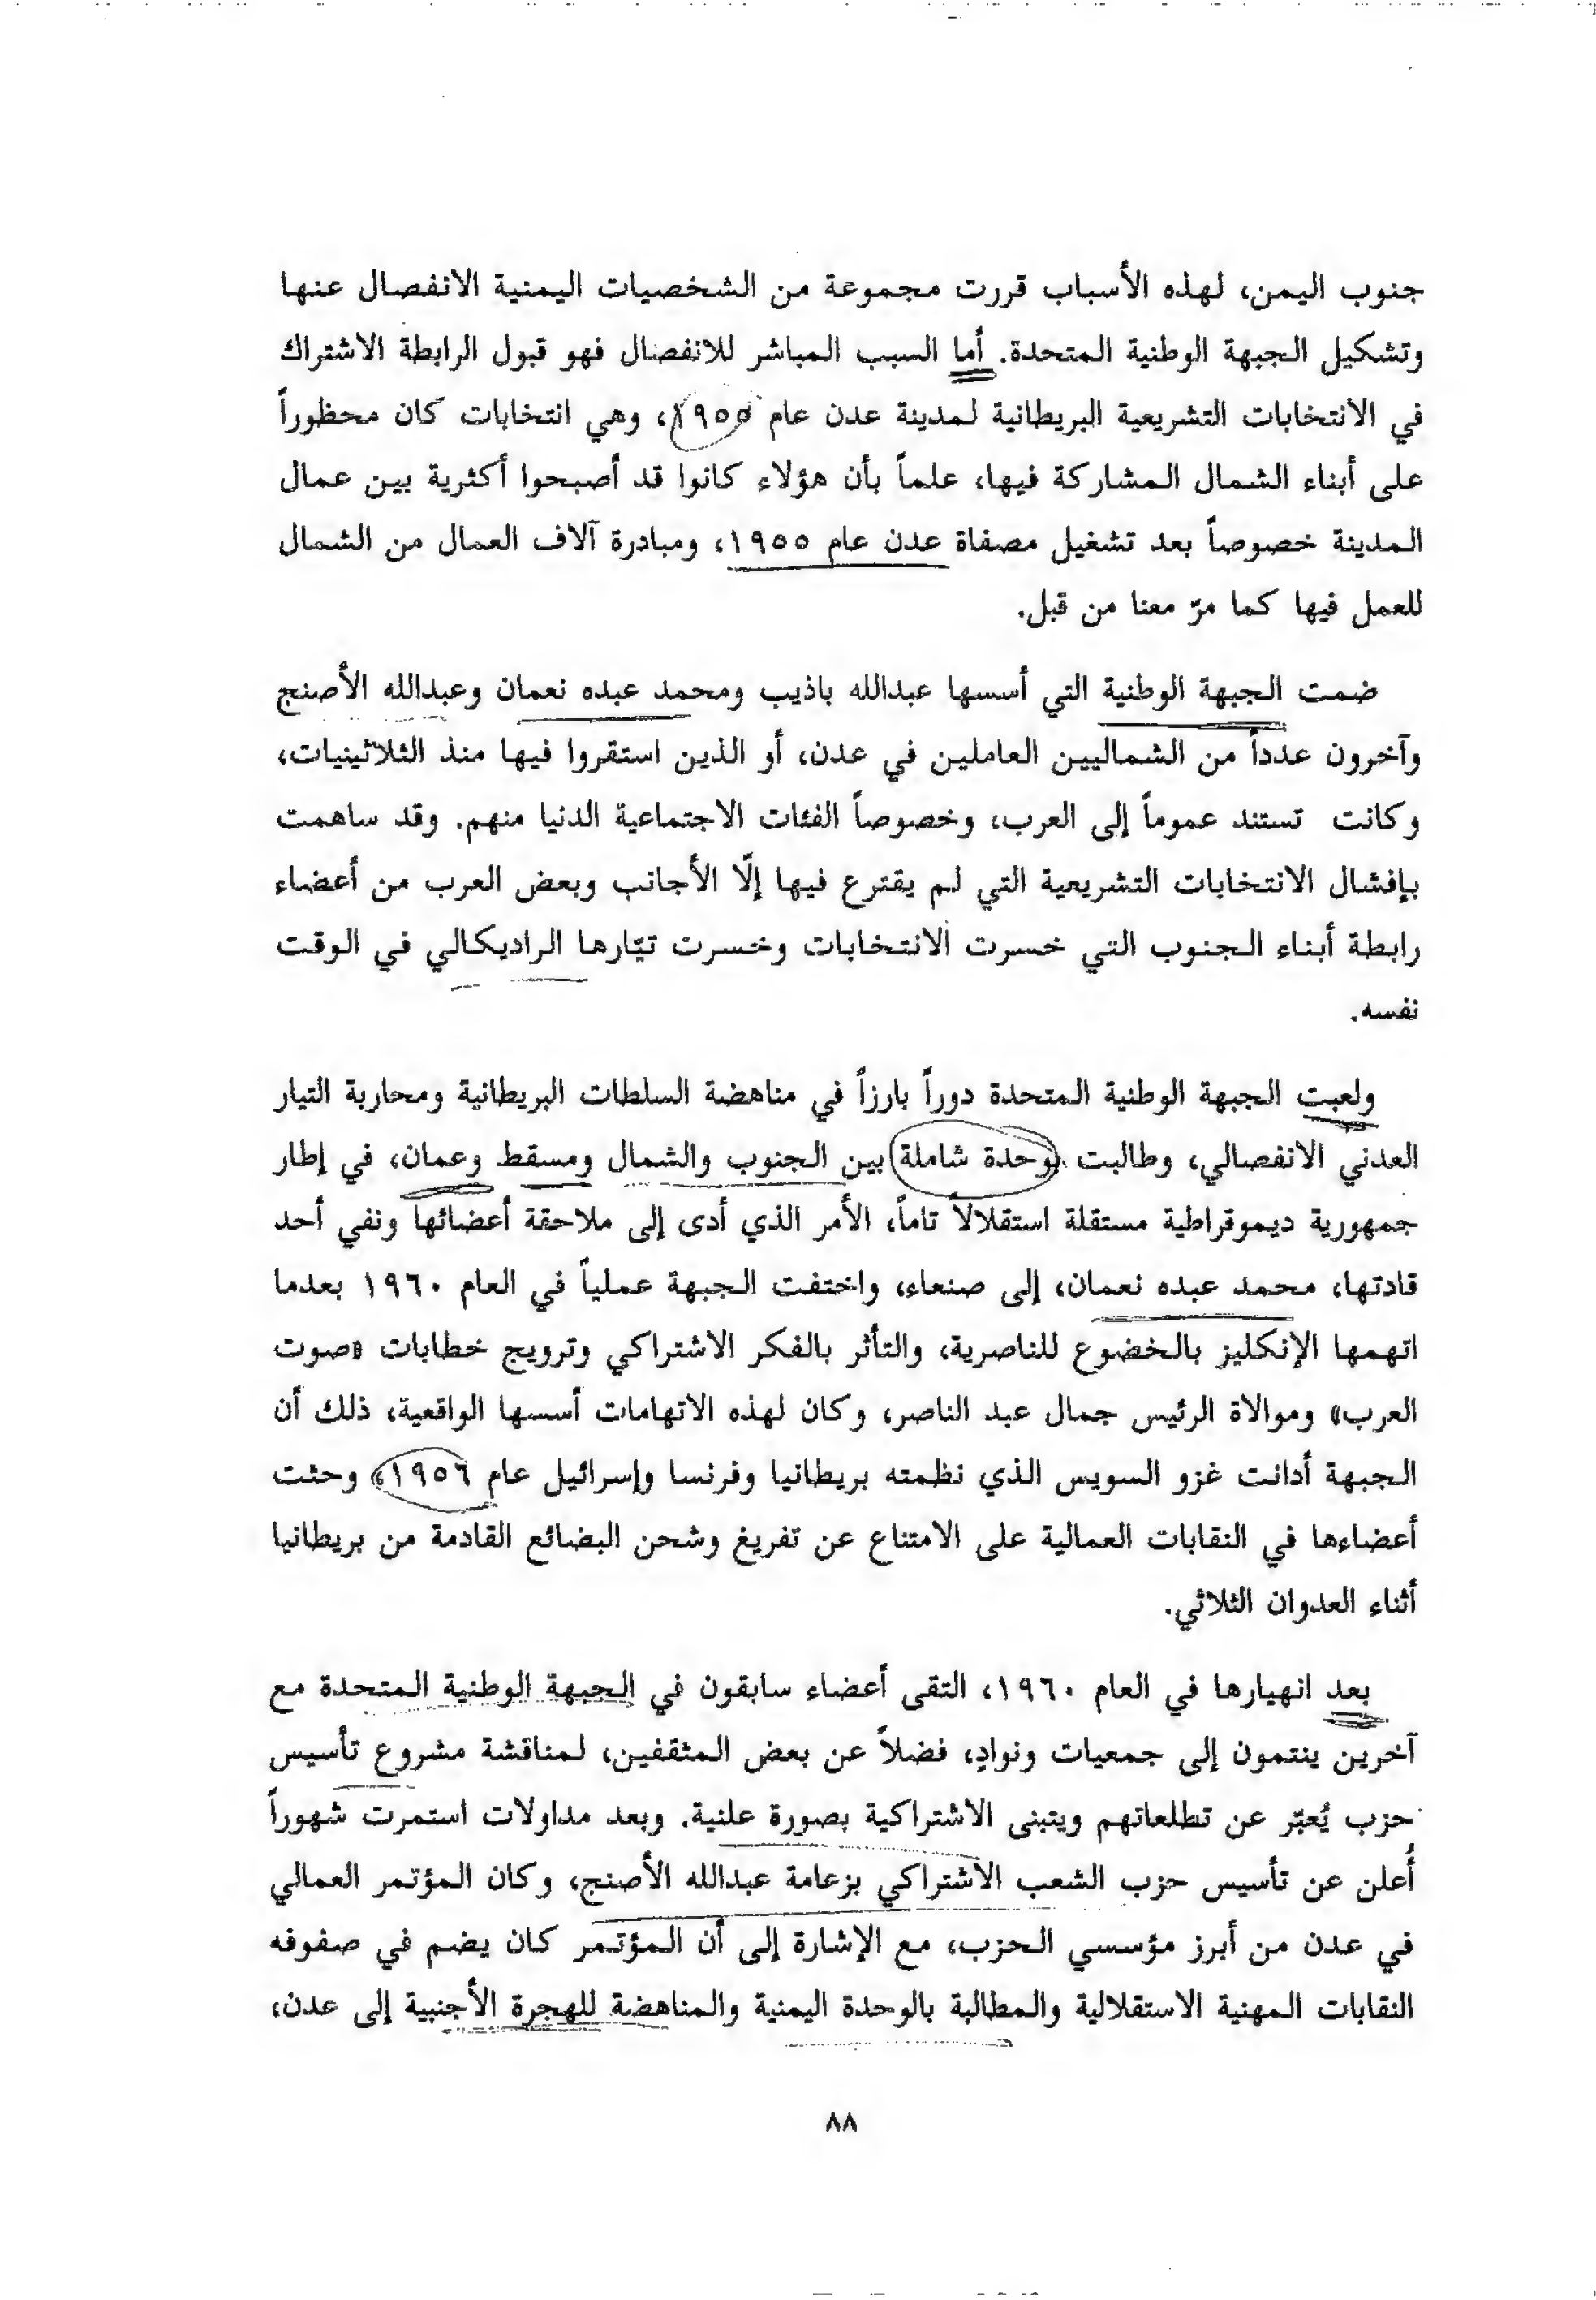 جنوب اليمن، لهذه الأسباب قررت مجموعة من الشخصيات اليمنية الانفصال عنها
وتشكيل الجبهة الوطنية المتحدة. أما السبب المباشر للانفصال فهو قبول الرابطة الاشتراك
في الانتخابات التشريعية البريطانية لمدينة عدن عام ١٩٥٥، وهي انتخابات كان محظوراً
على أبناء الشمال المشاركة فيها، علماً بأن هؤلاء كانوا قد أصبحوا أكثرية بين عمال
المدينة خصوصاً بعد تشغيل مصفاة عدن عام ١٩٥٥، ومبادرة آلاف العمال من الشمال
للعمل فيها كما مرّ معنا من قبل.
ضمت الجبهة الوطنية التي أسسها عبدالله باذيب ومحمد عبده نعمان وعبدالله الأصنج
وآخرون عدداً من الشماليين العاملين في عدن، أو الذين استقروا فيها منذ الثلاثينيات،
وكانت تستند عموماً إلى العرب، وخصوصاً الفئات الاجتماعية الدنيا منهم. وقد ساهمت
بإفشال الانتخابات التشريعية التي لم يقترع فيها إلّا الأجانب وبعض العرب من أعضاء
رابطة أبناء الجنوب التي خسرت الانتخابات وخسرت تيّارها الراديكالي في الوقت
نفسه.
ولعبت الجبهة الوطنية المتحدة دوراً بارزاً في مناهضة السلطات البريطانية ومحاربة التيار
العدني الانفصالي، وطالبت بوحدة شاملة بين الجنوب والشمال ومسقط وعمان، في إطار
جمهورية ديموقراطية مستقلة استقلالاً تاماً، الأمر الذي أدى إلى ملاحقة أعضائها ونفي أحد
قادتها، محمد عبده نعمان، إلى صنعاء، واختفت الجبهة عملياً في العام ١٩٦٠ بعدما
اتهمها الإنكليز بالخضوع للناصرية، والتأثر بالفكر الاشتراكي وترويج خطابات «صوت
العرب» وموالاة الرئيس جمال عبد الناصر، وكان لهذه الاتهامات أسسها الواقعية، ذلك أن
الجبهة أدانت غزو السويس الذي نظمته بريطانيا وفرنسا وإسرائيل عام ١٩٥٦، وحثت
أعضاءها في النقابات العمالية على الامتناع عن تفريغ وشحن البضائع القادمة من بريطانيا
أثناء العدوان الثلاثي.
بعد انهيارها في العام ١٩٦٠، التقى أعضاء سابقون في الجبهة الوطنية المتحدة مع
آخرين ينتمون إلى جمعيات ونوادٍ، فضلاً عن بعض المثقفين، لمناقشة مشروع تأسيس
حزب يُعبّر عن تطلعاتهم ويتبنى الاشتراكية بصورة علنية. وبعد مداولات استمرت شهوراً
أُعلن عن تأسيس حزب الشعب الاشتراكي بزعامة عبدالله الأصنج، وكان المؤتمر العمالي
في عدن من أبرز مؤسسي الحزب، مع الإشارة إلى أن المؤتمر كان يضم في صفوفه
النقابات المهنية الاستقلالية والمطالبة بالوحدة اليمنية والمناهضة للهجرة الأجنبية إلى عدن،
٨٨